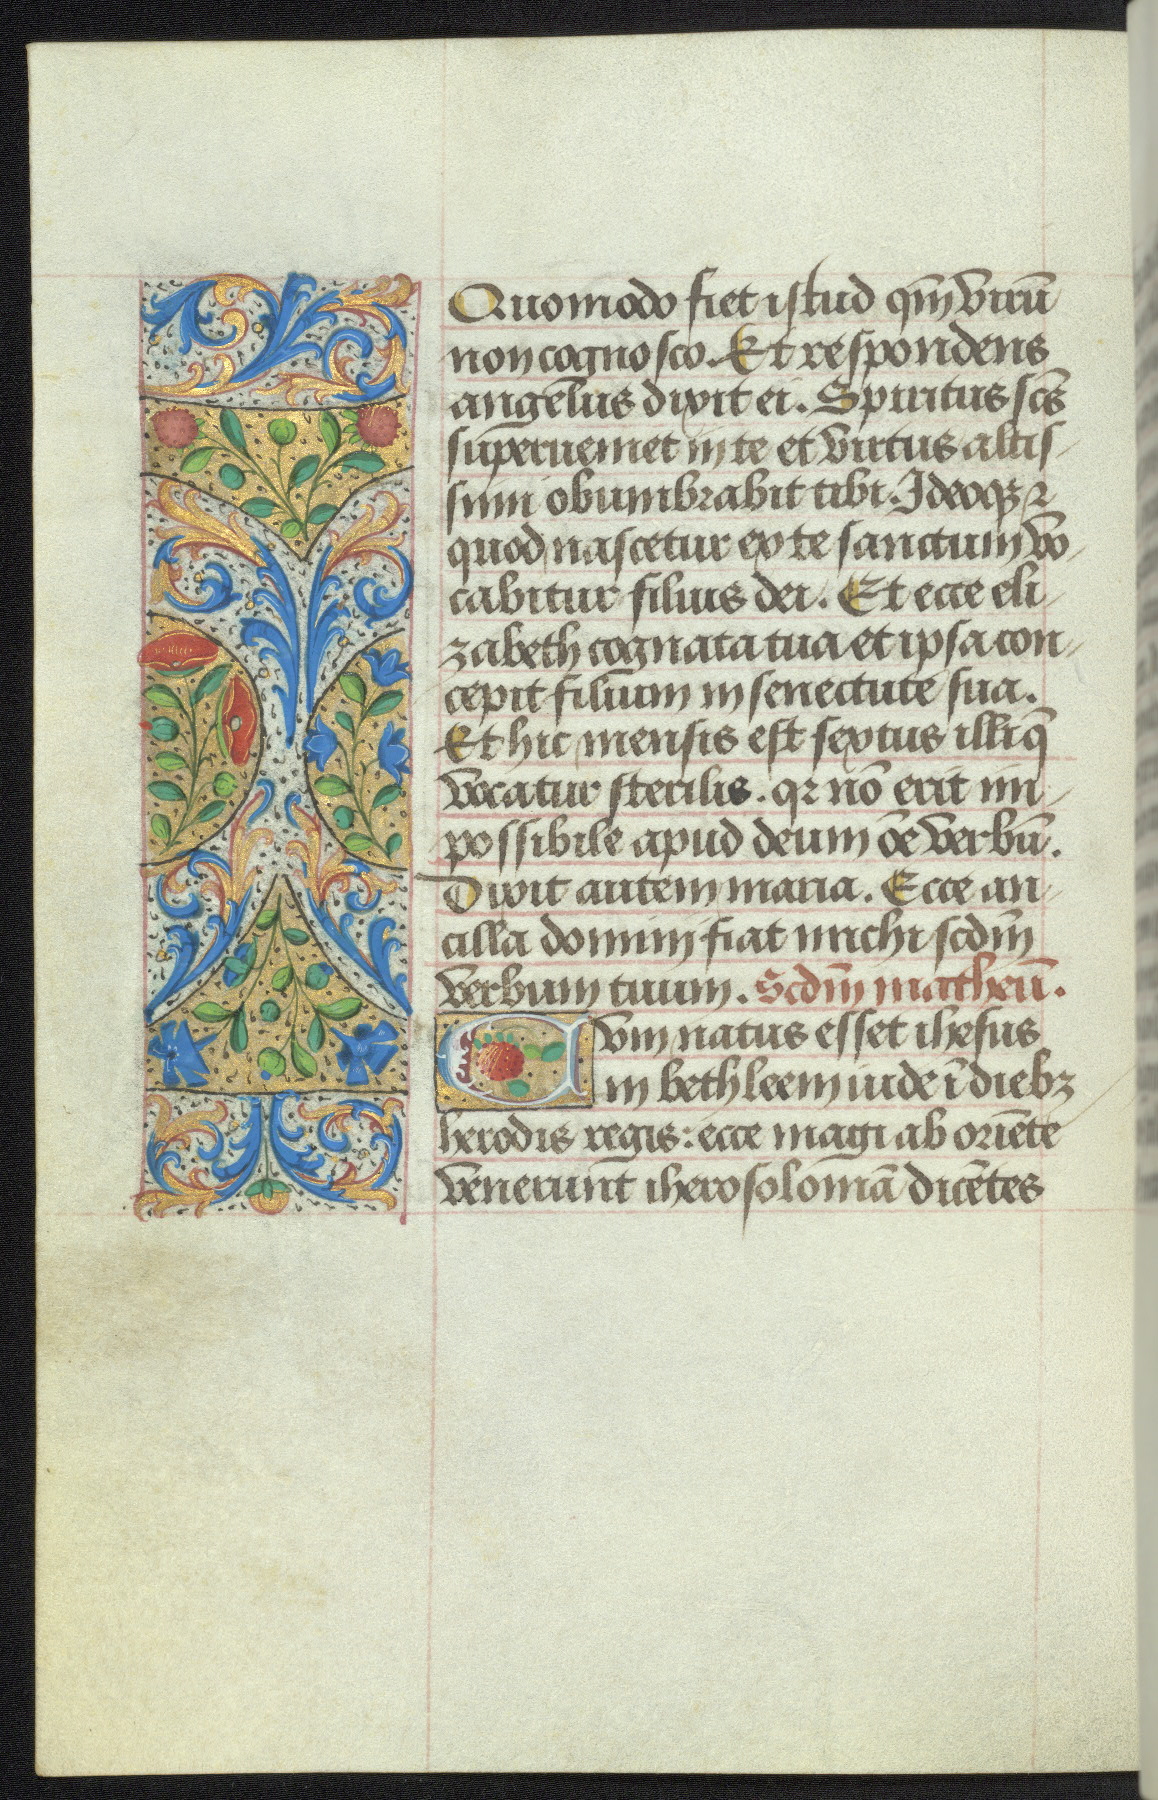 Quomodo fiet istud qm̄ virū
non cognosco. Et respondens
angelus dixit ei. Spiritus scs̄
superueniet in te et virtus altis-
simi obumbrabit tibi. Ideoqꝫ ⁊
quod nascetur ex te sanctum vo-
cabitur filius dei. Et ecce eli-
zabeth cognata tua et ipsa con-
cepit filium in senectute sua.
Et hic mensis est sextus illi q̄
vocatur sterilis. qꝛ nō erit im-
possibile apud deum ōe verbū.
Dixit autem maria. Ecce an-
cilla domini fiat michi scdm̄
verbum tuum. Scdm̄ matheū.
Cvm natus esset ihesus
in bethleem iude ī diebꝫ
herodis regis: ecce magi ab oriēte
venerunt iherosolomā dicētes